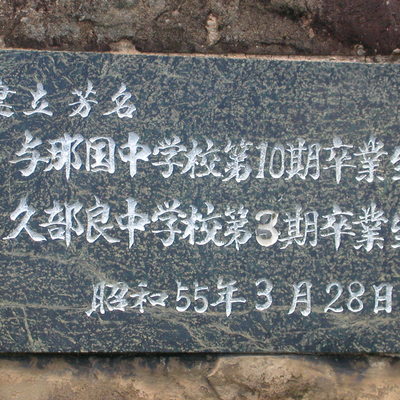 建立芳名
与那国中学校第10期卒業生
久部良中学校第3期卒業生
昭和55年3月28日